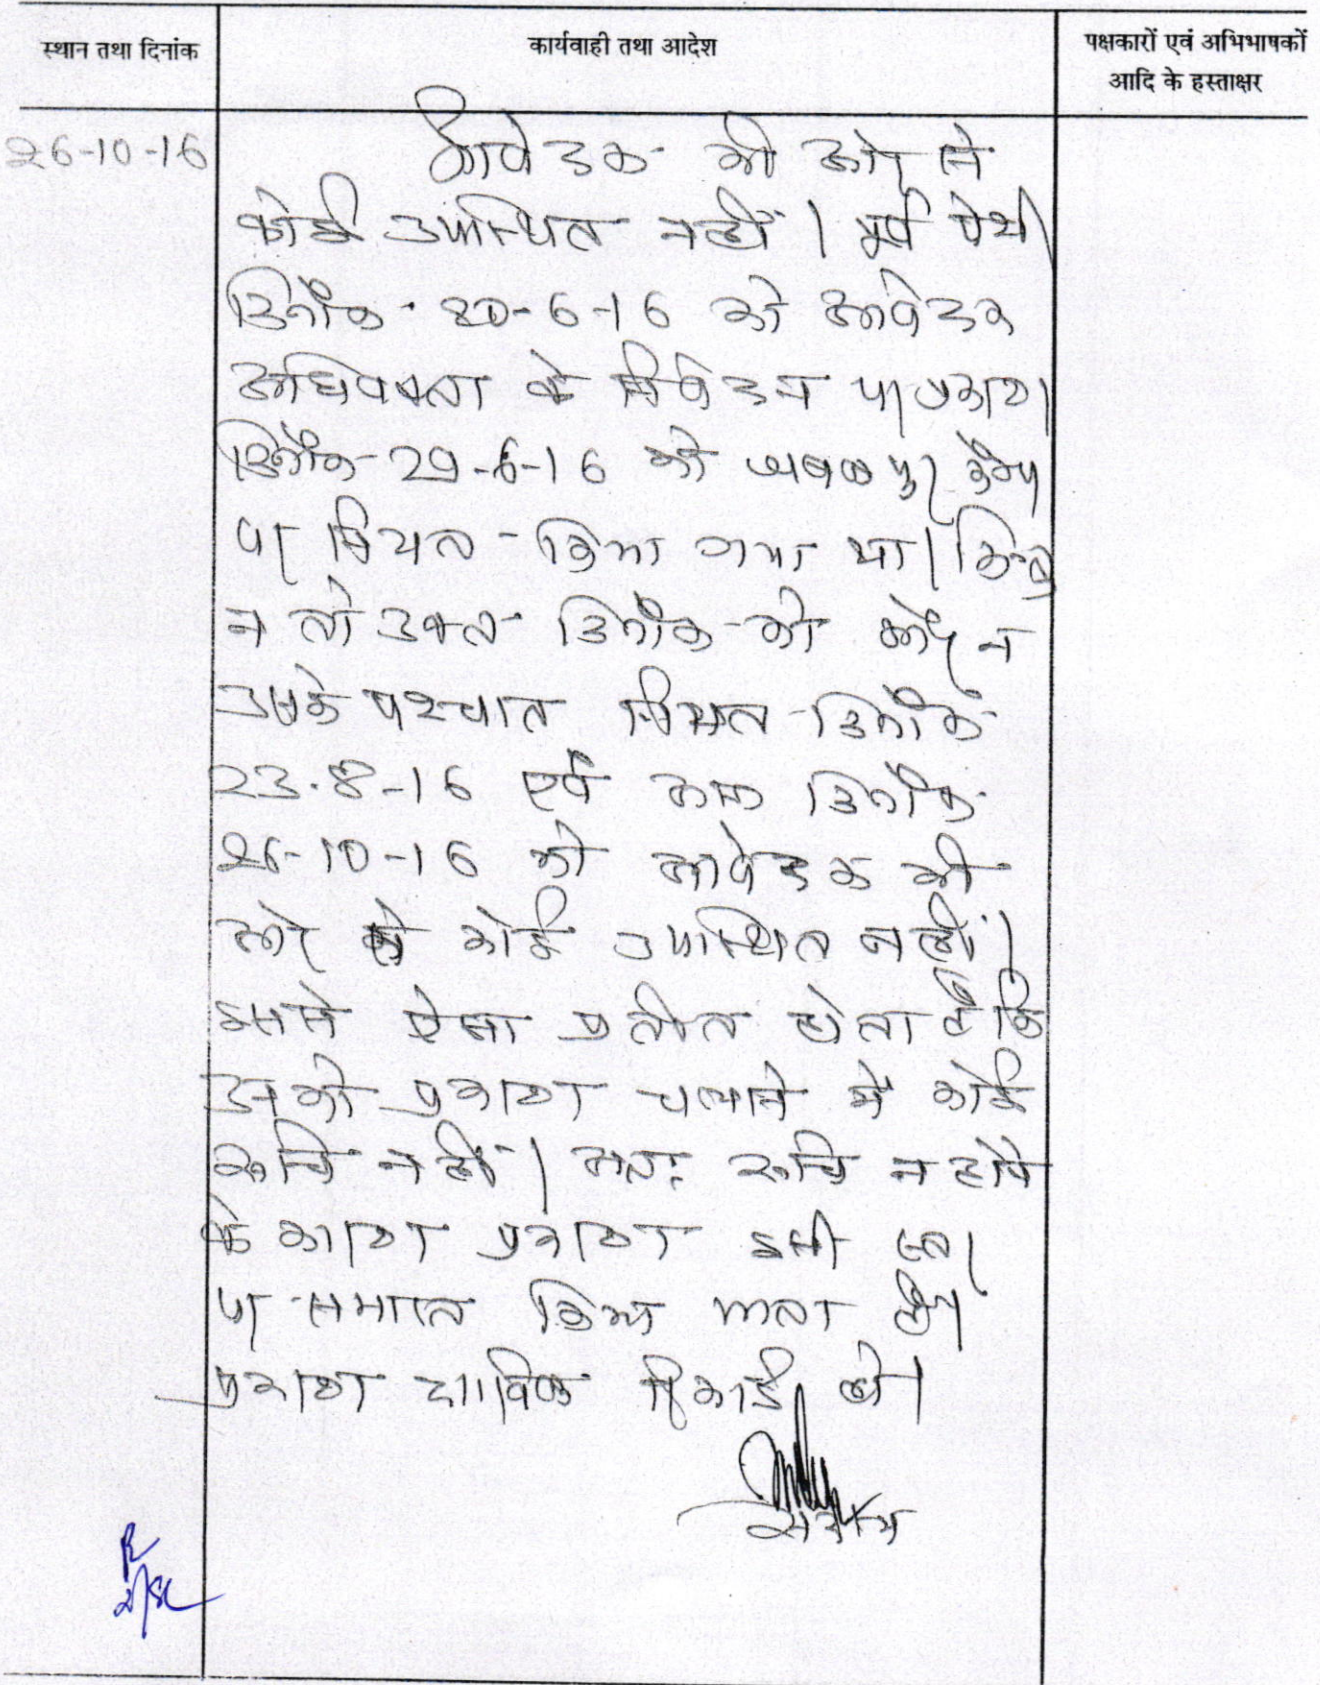 स्थान तथा दिनांक
कार्यवाही तथा आदेश
पक्षकारों एवं अभिभाषकों
आदि के हस्ताक्षर
26-10-16
आवेदक की ओर से
कोई उपस्थित नहीं। पूर्व पेशी
दिनाँक 20-6-16 को आवेदक
अधिवक्ता के निवेदन पर प्रकरण
दिनाँक-29-6-16 को जबलपुर कैम्प
पर नियत किया गया था। किन्तु
न तो उक्त दिनाँक को और न
उसके पश्चात नियत दिनाँक
23.8-16 एवं आज दिनाँक
26-10-16 को आवेदक की
ओर से कोई उपस्थित नहीं।
इससे ऐसा प्रतीत होता है कि
उनको प्रकरण चलाने में कोई
रूचि नहीं। अतः रूचि न होने
के कारण प्रकरण इसी स्तर
पर समाप्त किया जाता है।
प्रकरण दाखिल रिकार्ड हो।
सदस्य